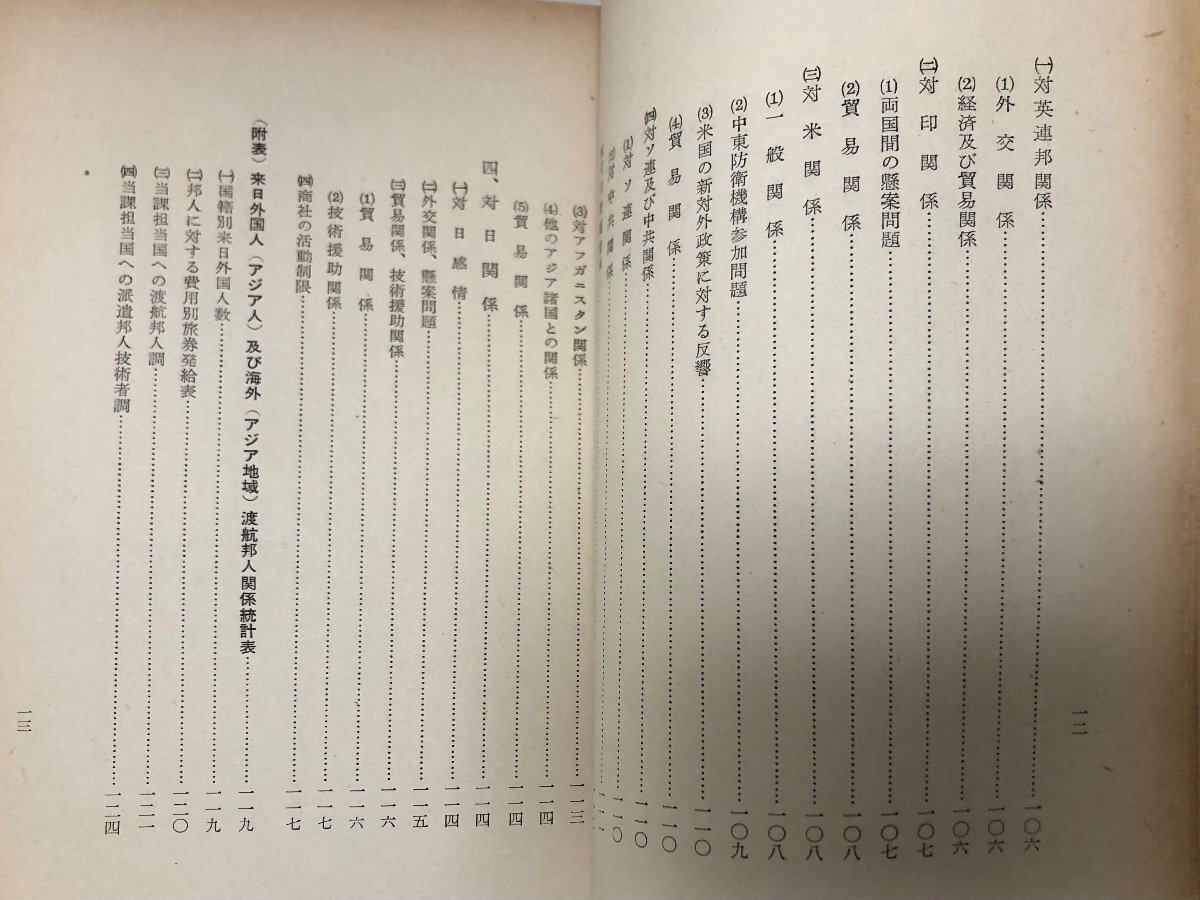 ㈠対英連邦関係……一〇六
⑴外交関係……一〇六
⑵経済及び貿易関係……一〇六
㈡対印関係……一〇七
⑴両国間の懸案問題……一〇七
⑵貿易関係……一〇八
㈢対米関係……一〇八
⑴一般関係……一〇八
⑵中東防衛機構参加問題……一〇九
⑶米国の新対外政策に対する反響……一一〇
⑷貿易関係……一一〇
㈣対ソ連及び中共関係……一一〇
⑴対ソ連関係……一一〇
⑵対中共関係……一一一
一二
⑶対アフガニスタン関係……一一三
⑷他のアジア諸国との関係……一一四
⑸貿易関係……一一四
四、対日関係……一一四
㈠対日感情……一一四
㈡外交関係、懸案問題……一一五
㈢貿易関係、技術援助関係……一一六
⑴貿易関係……一一六
⑵技術援助関係……一一七
㈣商社の活動制限……一一七
（附表）来日外国人（アジア人）及び海外（アジア地域）渡航邦人関係統計表……一一九
㈠国籍別来日外国人数……一一九
㈡邦人に対する費用別旅券発給表……一二〇
㈢当課担当国への渡航邦人調……一二二
㈣当課担当国への派遣邦人技術者調……一二四
一三